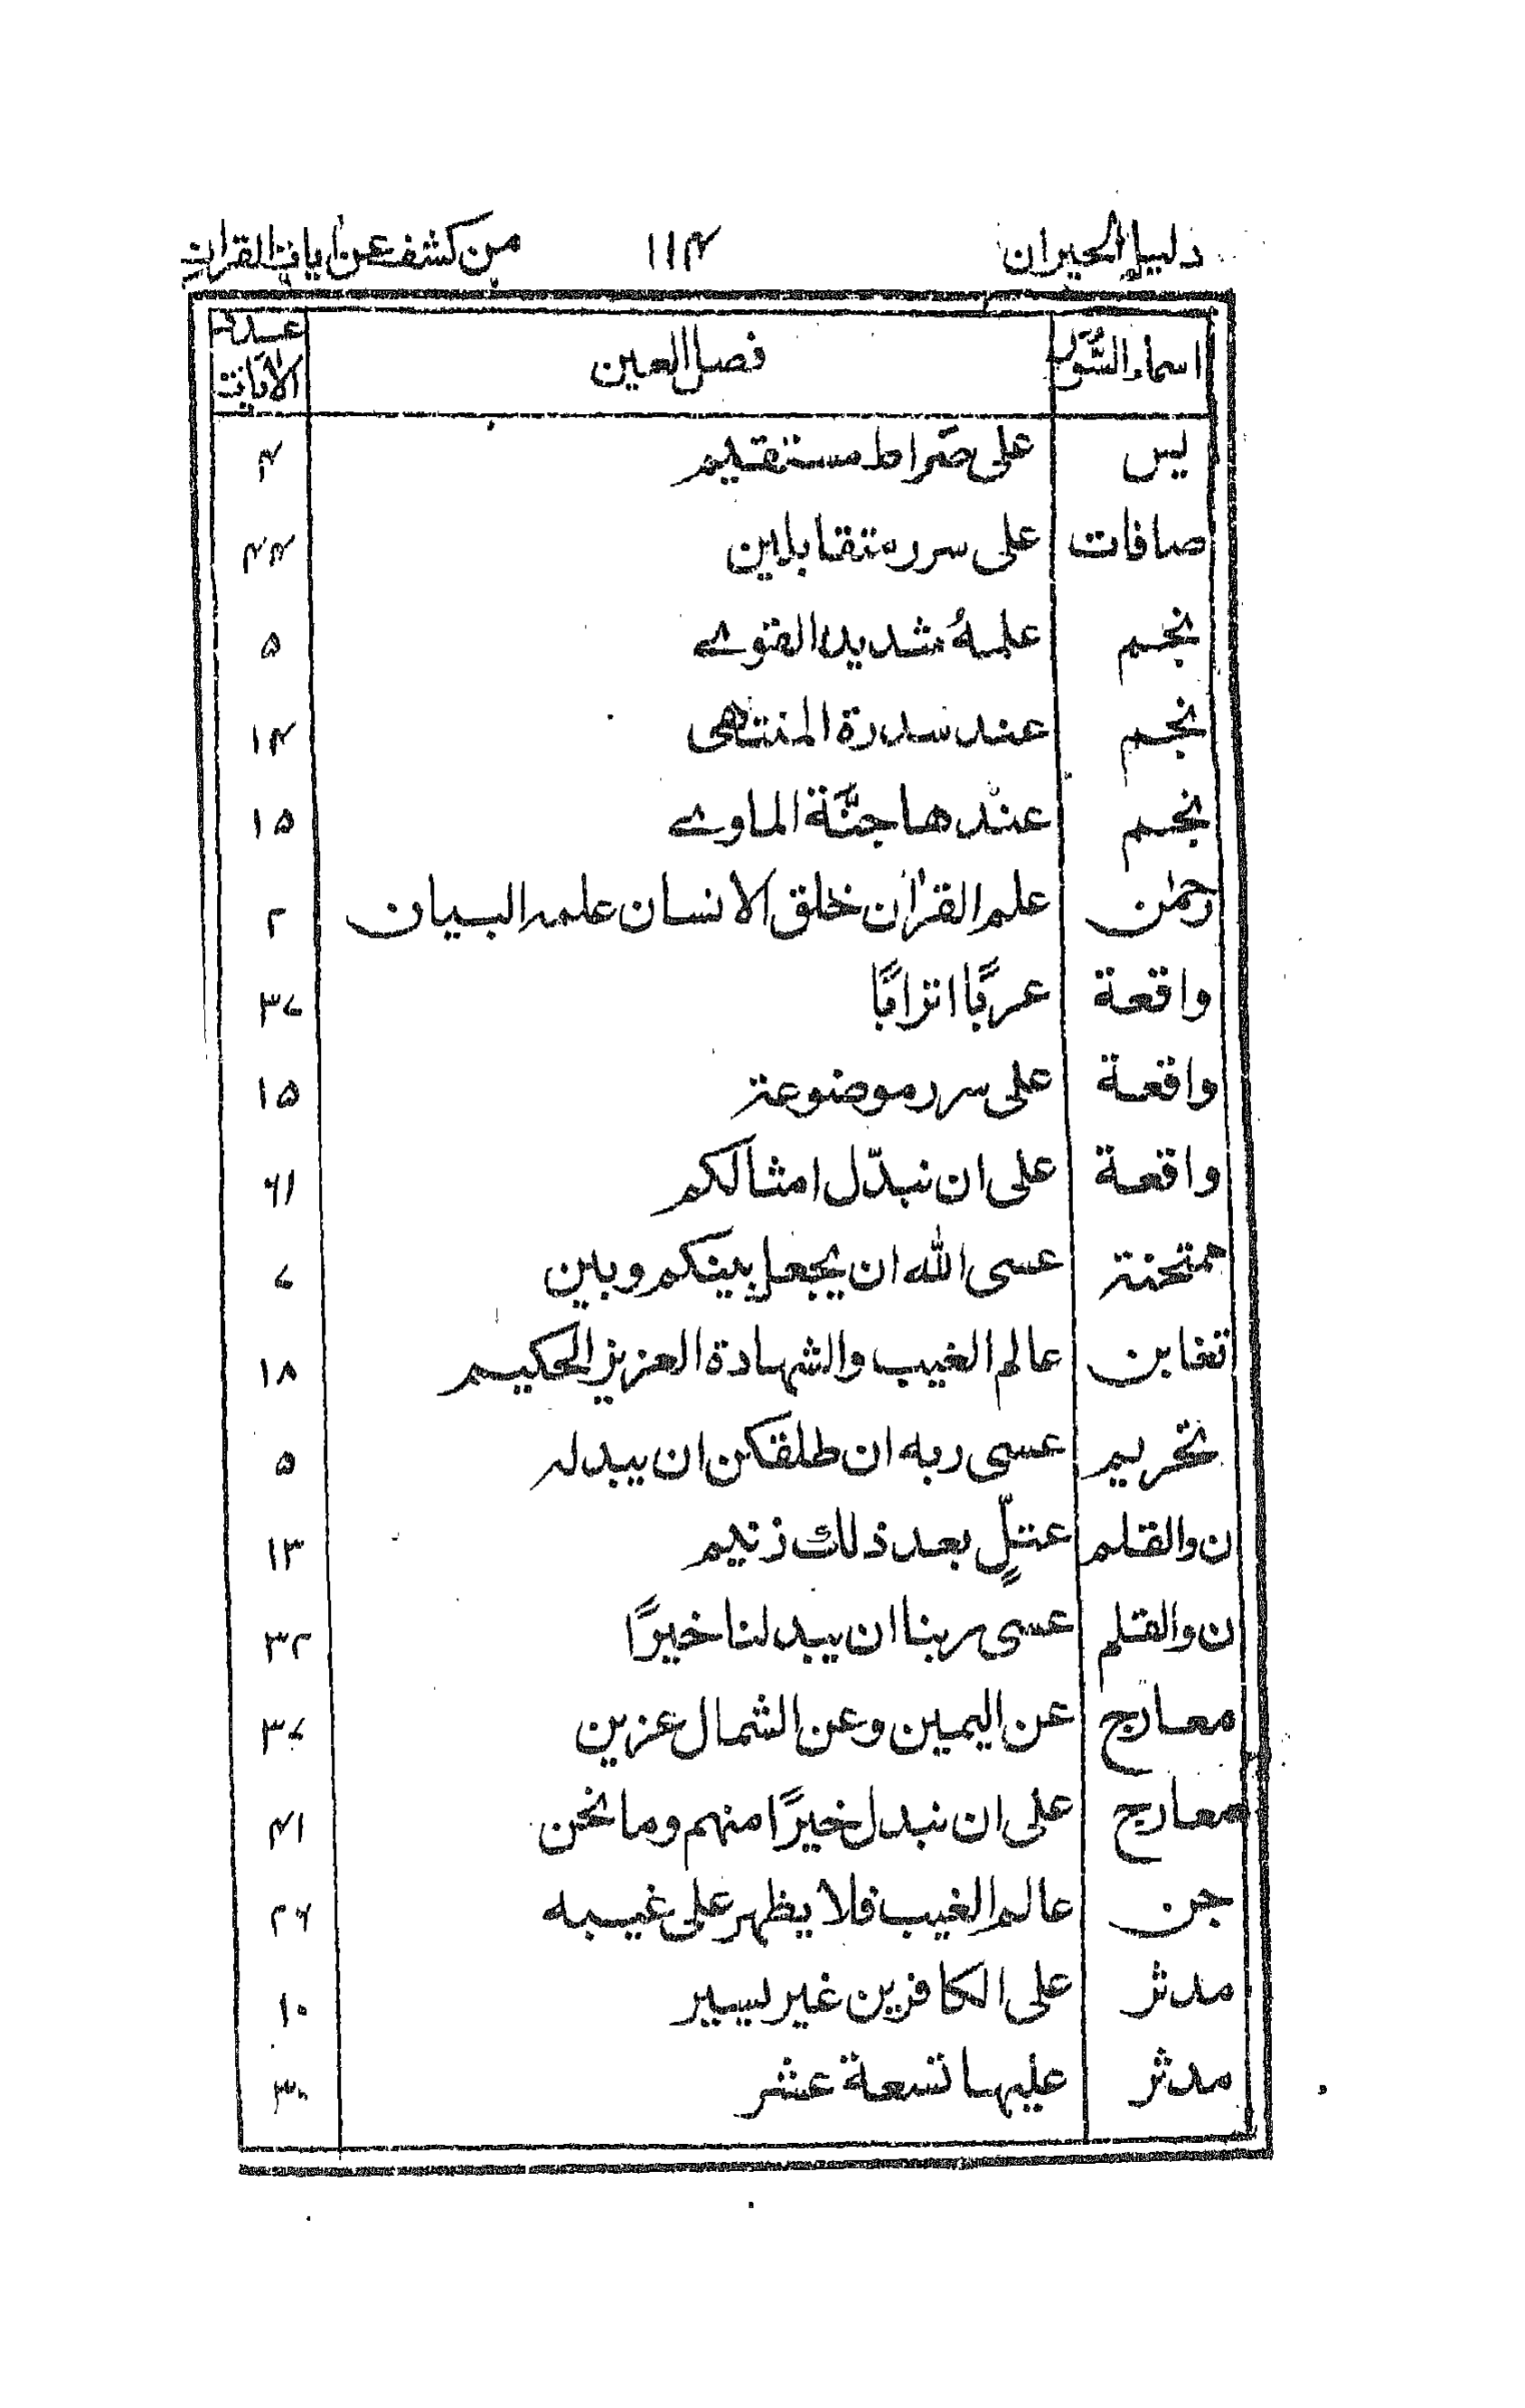 دليل الحيران ۱۱۴ من كشف عن ايات القران
اسماء السُّور فصل العين عدد الاٰيات
يس على صراط مستقيم ۴
صافات على سرر متقابلين ۴۴
نجم علمهُ شديد القوے ۵
نجم عند سدرة المنتهى ۱۴
نجم عندها جنَّة الماوے ۱۵
رحمٰن علم القراٰن خلق الانسان علمه البيان ۲
واقعة عربًا اترابًا ۳۷
واقعة على سرر موضوعة ۱۵
واقعة على ان نبدّل امثالكم ۶۱
ممتحنة عسى الله ان يجعل بينكم وبين ۷
تغابن عالم الغيب والشهادة العزيز الحكيم ۱۸
تحريم عسى ربه ان طلقكن ان يبدله ۵
ن والقلم عتلٍّ بعد ذلك زنيم ۱۳
ن والقلم عسى ربنا ان يبدلنا خيرًا ۳۲
معارج عن اليمين وعن الشمال عزين ۳۷
معارج على ان نبدل خيرًا منهم وما نحن ۴۱
جن عالم الغيب فلا يظهر على غيبه ۲۶
مدثر على الكافرين غير يسير ۱۰
مدثر عليها تسعة عشر ۳۰